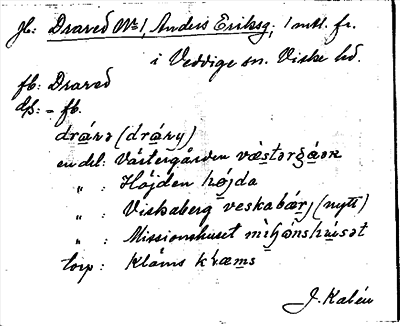 fb: Drared No 1, Anders Eriksg; 1 mtl. fr.
i Veddige sn. Viske hd.
fb: Drared
Us: - fb.
drárə (dráry)
en del: Västergården væstərgáꝛn
„ : Höjden höjda
„ : Viskaberg veskabárj (nytt)
„ : Missionshuset miʃónshúsət
torp: Kläms kræms
J. Kalén